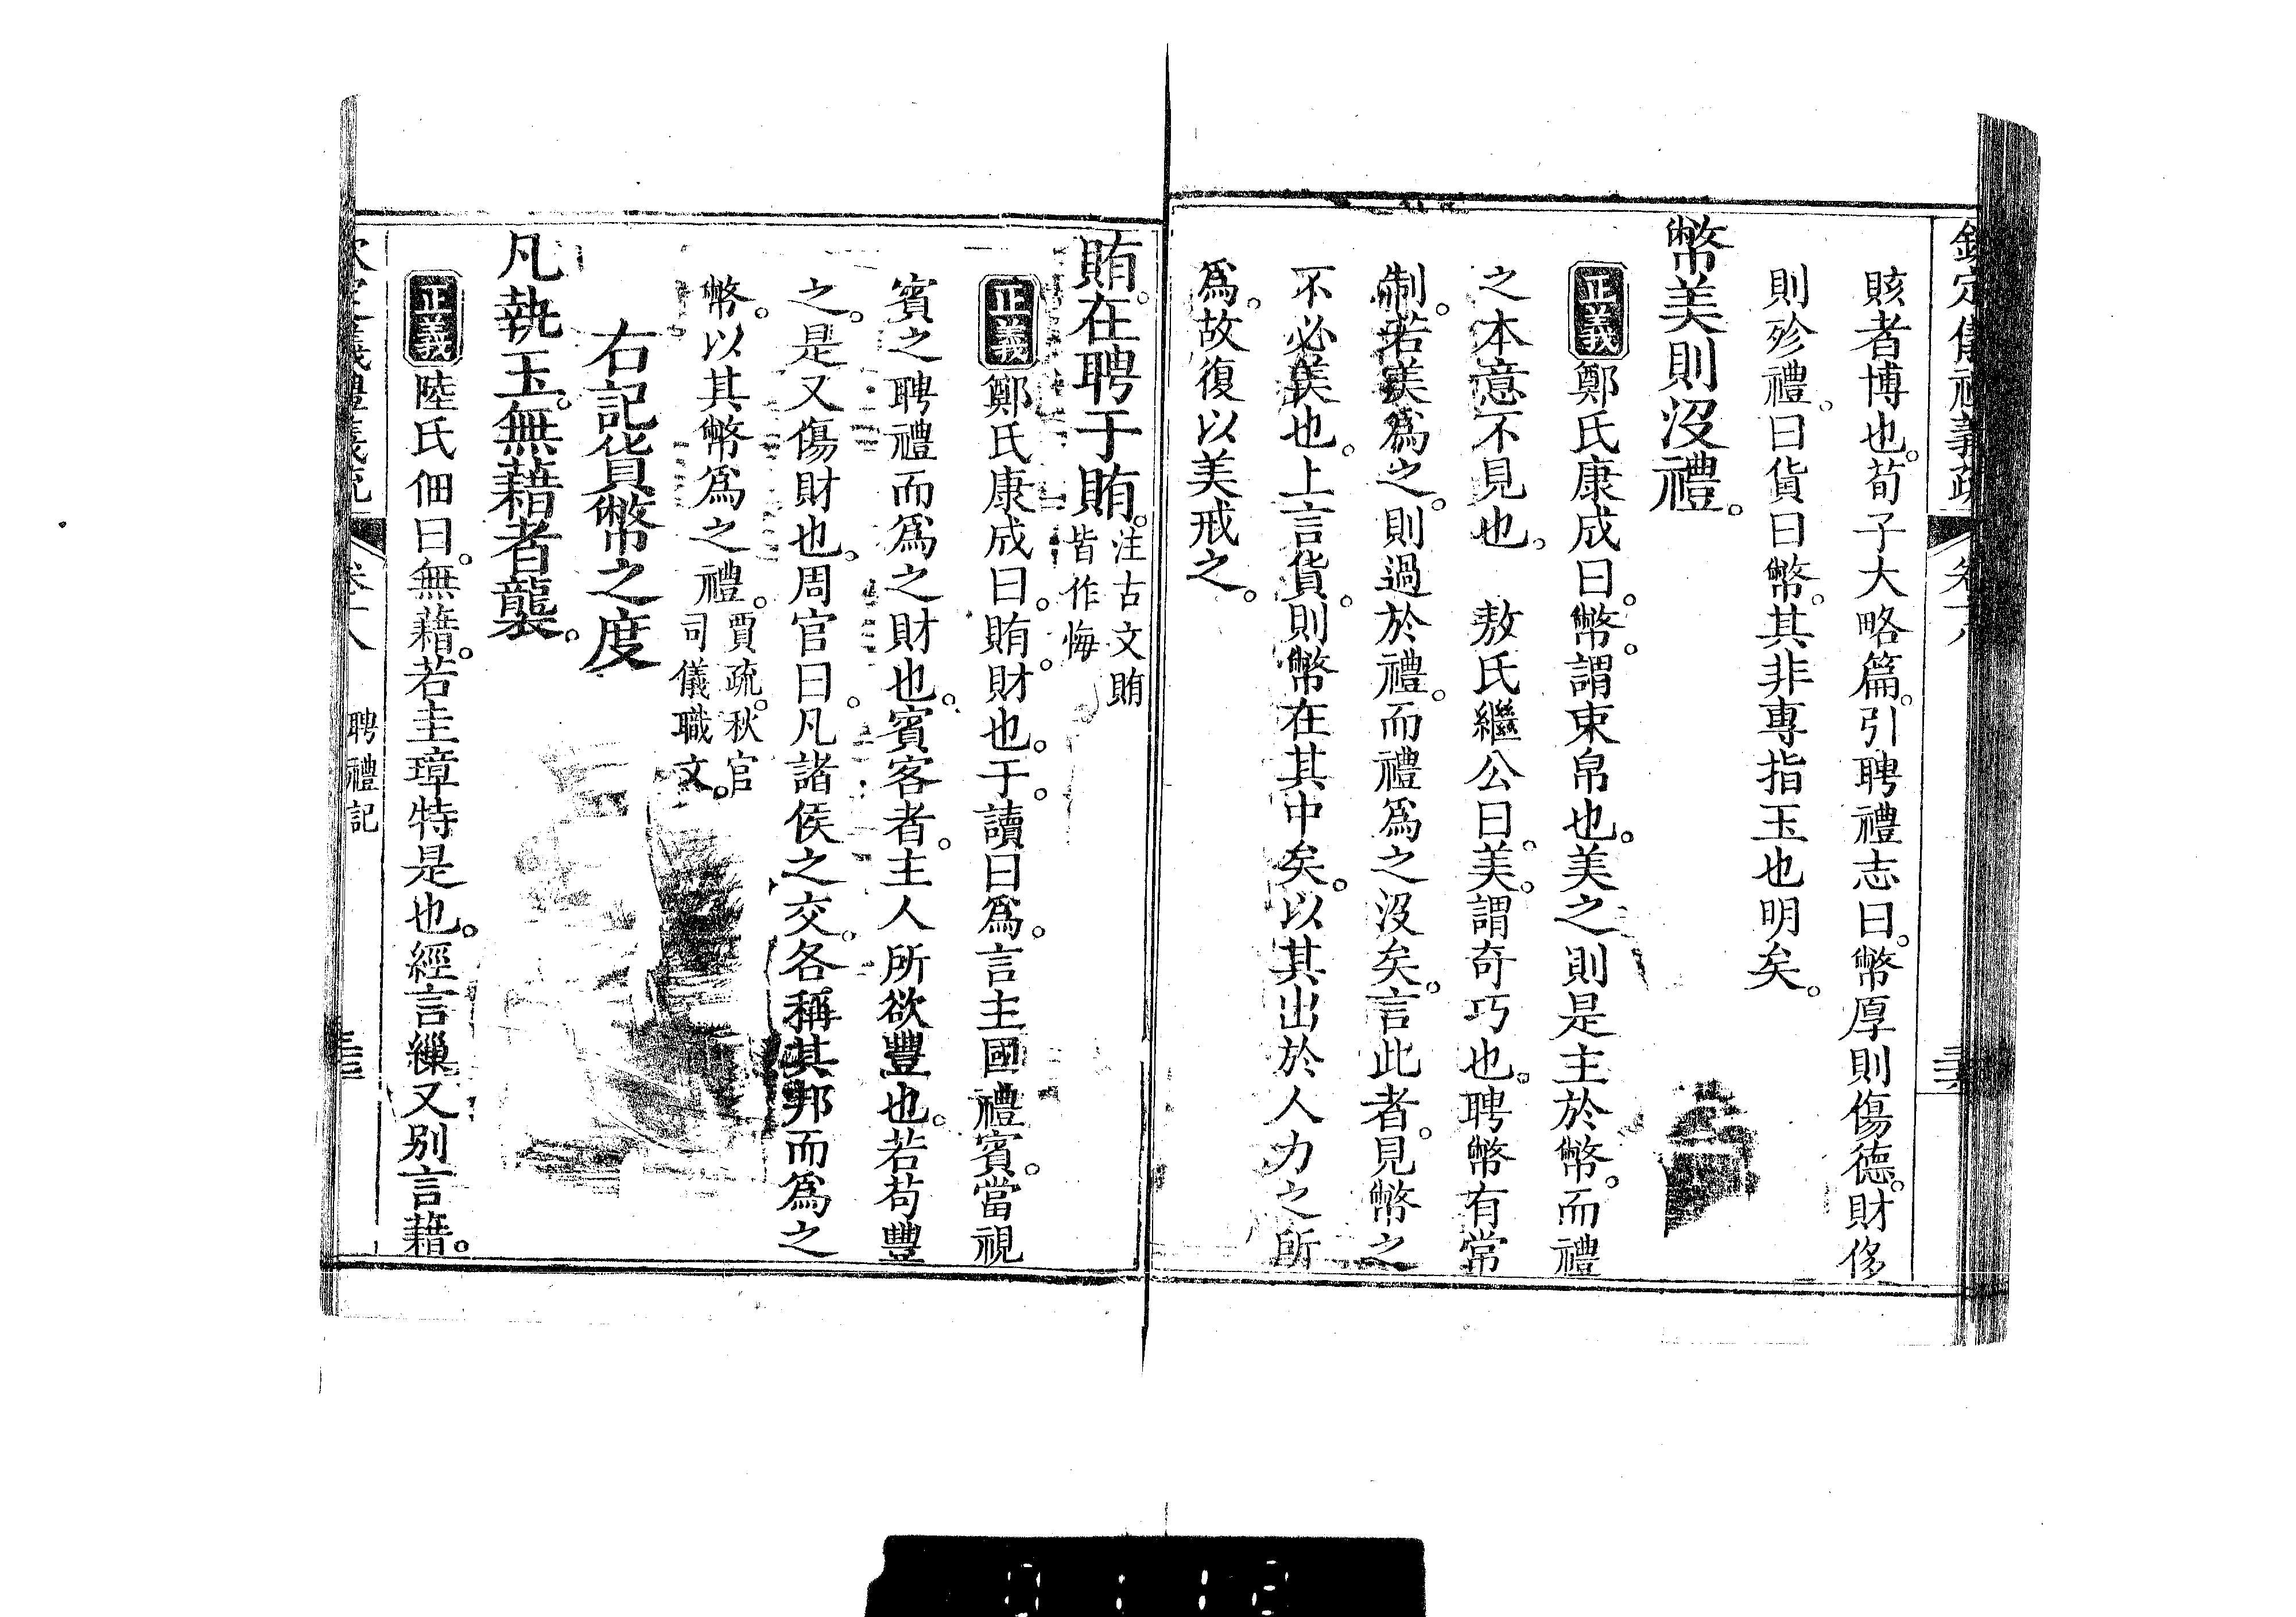 欽定儀禮義疏 卷十八
賅者博也。荀子大略篇。引聘禮志曰。幣厚則傷德。財侈
則殄禮。曰貨曰幣。其非專指玉也明矣。
幣美則沒禮。
正義 鄭氏康成曰。幣。謂束帛也。美之則是主於幣。而禮
之本意不見也。 敖氏繼公曰。美。謂奇巧也。聘幣有常
制。若美爲之。則過於禮。而禮爲之沒矣。言此者。見幣之
不必美也。上言貨。則幣在其中矣。以其出於人力之所
爲。故復以美戒之。
賄。在聘于賄。注古文賄
皆作悔
正義 鄭氏康成曰。賄。財也。于。讀曰爲。言主國禮賓。當視
賓之聘禮而爲之財也。賓客者。主人所欲豐也。若苟豐
之。是又傷財也。周官曰。凡諸侯之交。各稱其邦而爲之
幣。以其幣爲之禮。賈疏。秋官
司儀職文。
右記貨幣之度
凡執玉。無藉者襲。
正義 陸氏佃曰。無藉。若圭璋特是也。經言繅又別言藉。
欽定儀禮義疏 卷十八 聘禮記